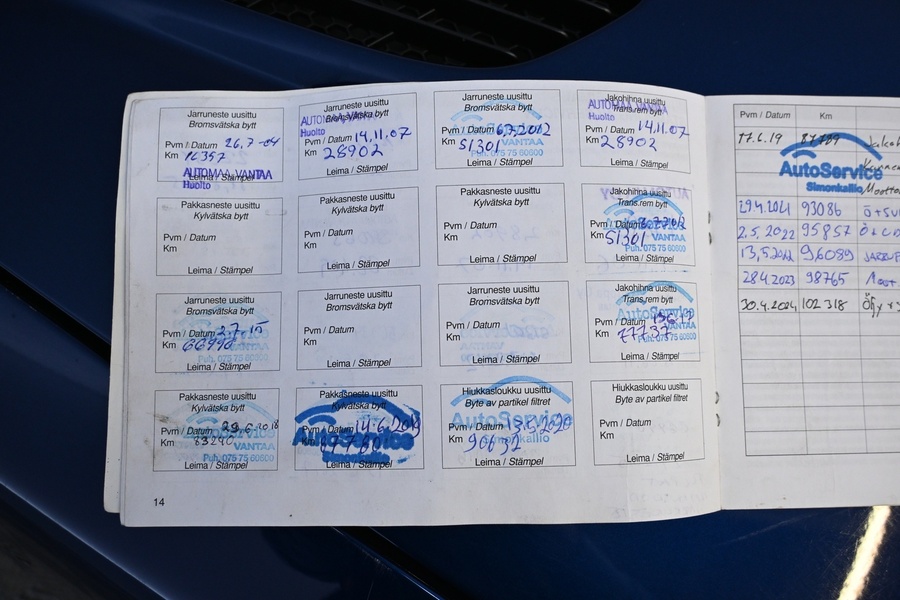 Jarruneste uusittu
Bromsvätska bytt
Pvm / Datum 26.7-04
Km 16357
Leima / Stämpel
AUTOMAA VANTAA
Huolto
Jarruneste uusittu
Bromsvätska bytt
AUTOMAA VANTAA
Huolto
Pvm / Datum 14.11.07
Km 28902
Leima / Stämpel
Jarruneste uusittu
Bromsvätska bytt
Pvm / Datum
Km 51301
VANTAA
Puh. 075 75 60600
Leima / Stämpel
Jakohihna uusittu
Trans.rem bytt
AUTOMAA VANTAA
Huolto
Pvm / Datum 14.11.07
Km 28902
Leima / Stämpel
Pakkasneste uusittu
Kylvätska bytt
Pvm / Datum
Km
Leima / Stämpel
Pakkasneste uusittu
Kylvätska bytt
Pvm / Datum
Km
Leima / Stämpel
Pakkasneste uusittu
Kylvätska bytt
Pvm / Datum
Km
Leima / Stämpel
Jakohihna uusittu
Trans.rem bytt
Pvm / Datum
Km 51301
VANTAA
Leima / Stämpel
Jarruneste uusittu
Bromsvätska bytt
Pvm / Datum 2.7.15
Km 66990
VANTAA
Puh. 075 75 60600
Leima / Stämpel
Jarruneste uusittu
Bromsvätska bytt
Pvm / Datum
Km
Leima / Stämpel
Jarruneste uusittu
Bromsvätska bytt
Pvm / Datum
Km
Leima / Stämpel
Jakohihna uusittu
Trans.rem bytt
Pvm / Datum
Km 77737
VANTAA
Leima / Stämpel
Pakkasneste uusittu
Kylvätska bytt
Pvm / Datum 29.6.2018
Km 83240
VANTAA
Puh. 075 75 60600
Leima / Stämpel
Pakkasneste uusittu
Kylvätska bytt
Pvm / Datum 14.6.2019
Km
Leima / Stämpel
Hiukkasloukku uusittu
Byte av partikel filtret
AutoService
Pvm / Datum 13.5.2020
Km 90632
Simonkallio
Leima / Stämpel
Hiukkasloukku uusittu
Byte av partikel filtret
Pvm / Datum
Km
Leima / Stämpel
14
Pvm / Datum Km
17.6.19
AutoService
Simonkallio
29.4.2021 93086
2.5.2022 95857
13.5.2022 96089
28.4.2023 98765
30.4.2024 102 318